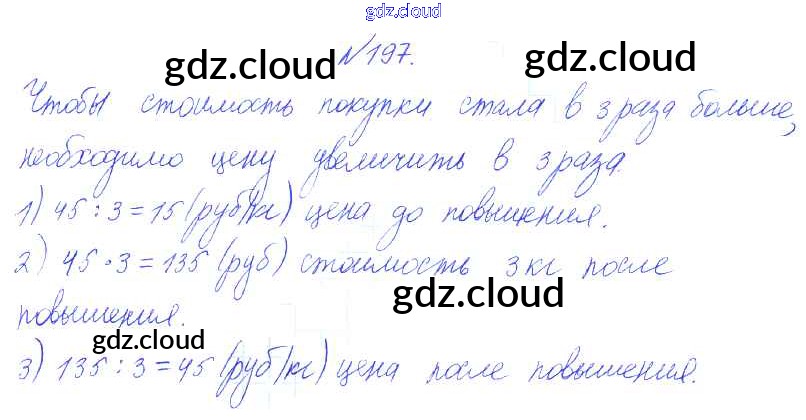 gdz.cloud
gdz.cloud
gdz.cloud
№197.
Чтобы стоимость покупки стала в 3 раза больше,
необходимо цену увеличить в 3 раза.
1) 45 : 3 = 15 (руб/кг) цена до повышения.
gdz.cloud
2) 45 · 3 = 135 (руб) стоимость 3 кг после
gdz.cloud
повышения.
gdz.cloud
3) 135 : 3 = 45 (руб/кг) цена после повышения.